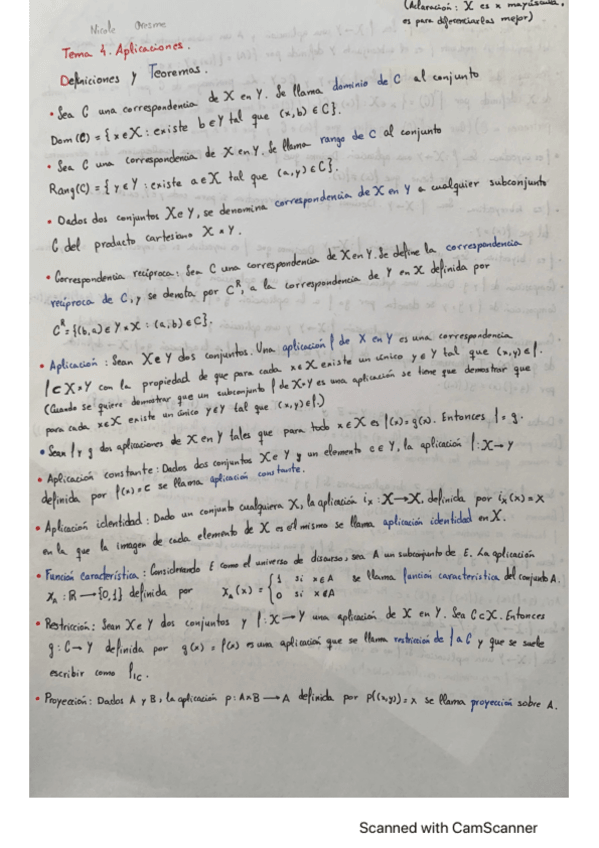 (Aclaración: X es x mayúscula,
es para diferenciarlas mejor)
Nicole Oresme
Tema 4. Aplicaciones.
Definiciones y Teoremas.
• Sea C una correspondencia de X en Y. Se llama dominio de C al conjunto
Dom(C) = {x∈X : existe b∈Y tal que (x,b)∈C}.
• Sea C una correspondencia de X en Y. Se llama rango de C al conjunto
Rang(C) = {y∈Y : existe a∈X tal que (a,y)∈C}.
• Dados dos conjuntos X e Y, se denomina correspondencia de X en Y a cualquier subconjunto
C del producto cartesiano X×Y.
• Correspondencia recíproca: Sea C una correspondencia de X en Y. Se define la correspondencia
recíproca de C, y se denota por Cᴿ, a la correspondencia de Y en X definida por
Cᴿ = {(b,a)∈Y×X : (a,b)∈C}.
• Aplicación: Sean X e Y dos conjuntos. Una aplicación f de X en Y es una correspondencia
f⊂X×Y con la propiedad de que para cada x∈X existe un único y∈Y tal que (x,y)∈f.
(Cuando se quiere demostrar que un subconjunto f de X×Y es una aplicación se tiene que demostrar que
para cada x∈X existe un único y∈Y tal que (x,y)∈f.)
• Sean f y g dos aplicaciones de X en Y tales que para todo x∈X es f(x)=g(x). Entonces f=g.
• Aplicación constante: Dados dos conjuntos X e Y y un elemento c∈Y, la aplicación f: X→Y
definida por f(x)=c se llama aplicación constante.
• Aplicación identidad: Dado un conjunto cualquiera X, la aplicación iₓ: X→X definida por iₓ(x)=x
en la que la imagen de cada elemento de X es el mismo se llama aplicación identidad en X.
• Función característica: Considerando E como el universo de discurso, sea A un subconjunto de E. La aplicación
χ_A: ℝ→{0,1} definida por χ_A(x) = { 1 si x∈A 0 si x∉A se llama función característica del conjunto A.
• Restricción: Sean X e Y dos conjuntos y f: X→Y una aplicación de X en Y. Sea C⊂X. Entonces
g: C→Y definida por g(x)=f(x) es una aplicación que se llama restricción de f a C y que se suele
escribir como f|C.
• Proyección: Dados A y B, la aplicación p: A×B→A definida por p((x,y))=x se llama proyección sobre A.
Scanned with CamScanner